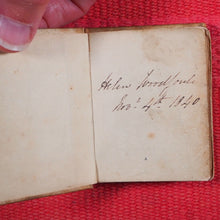 Helen Woodfoule
Nov.r 4th 1840